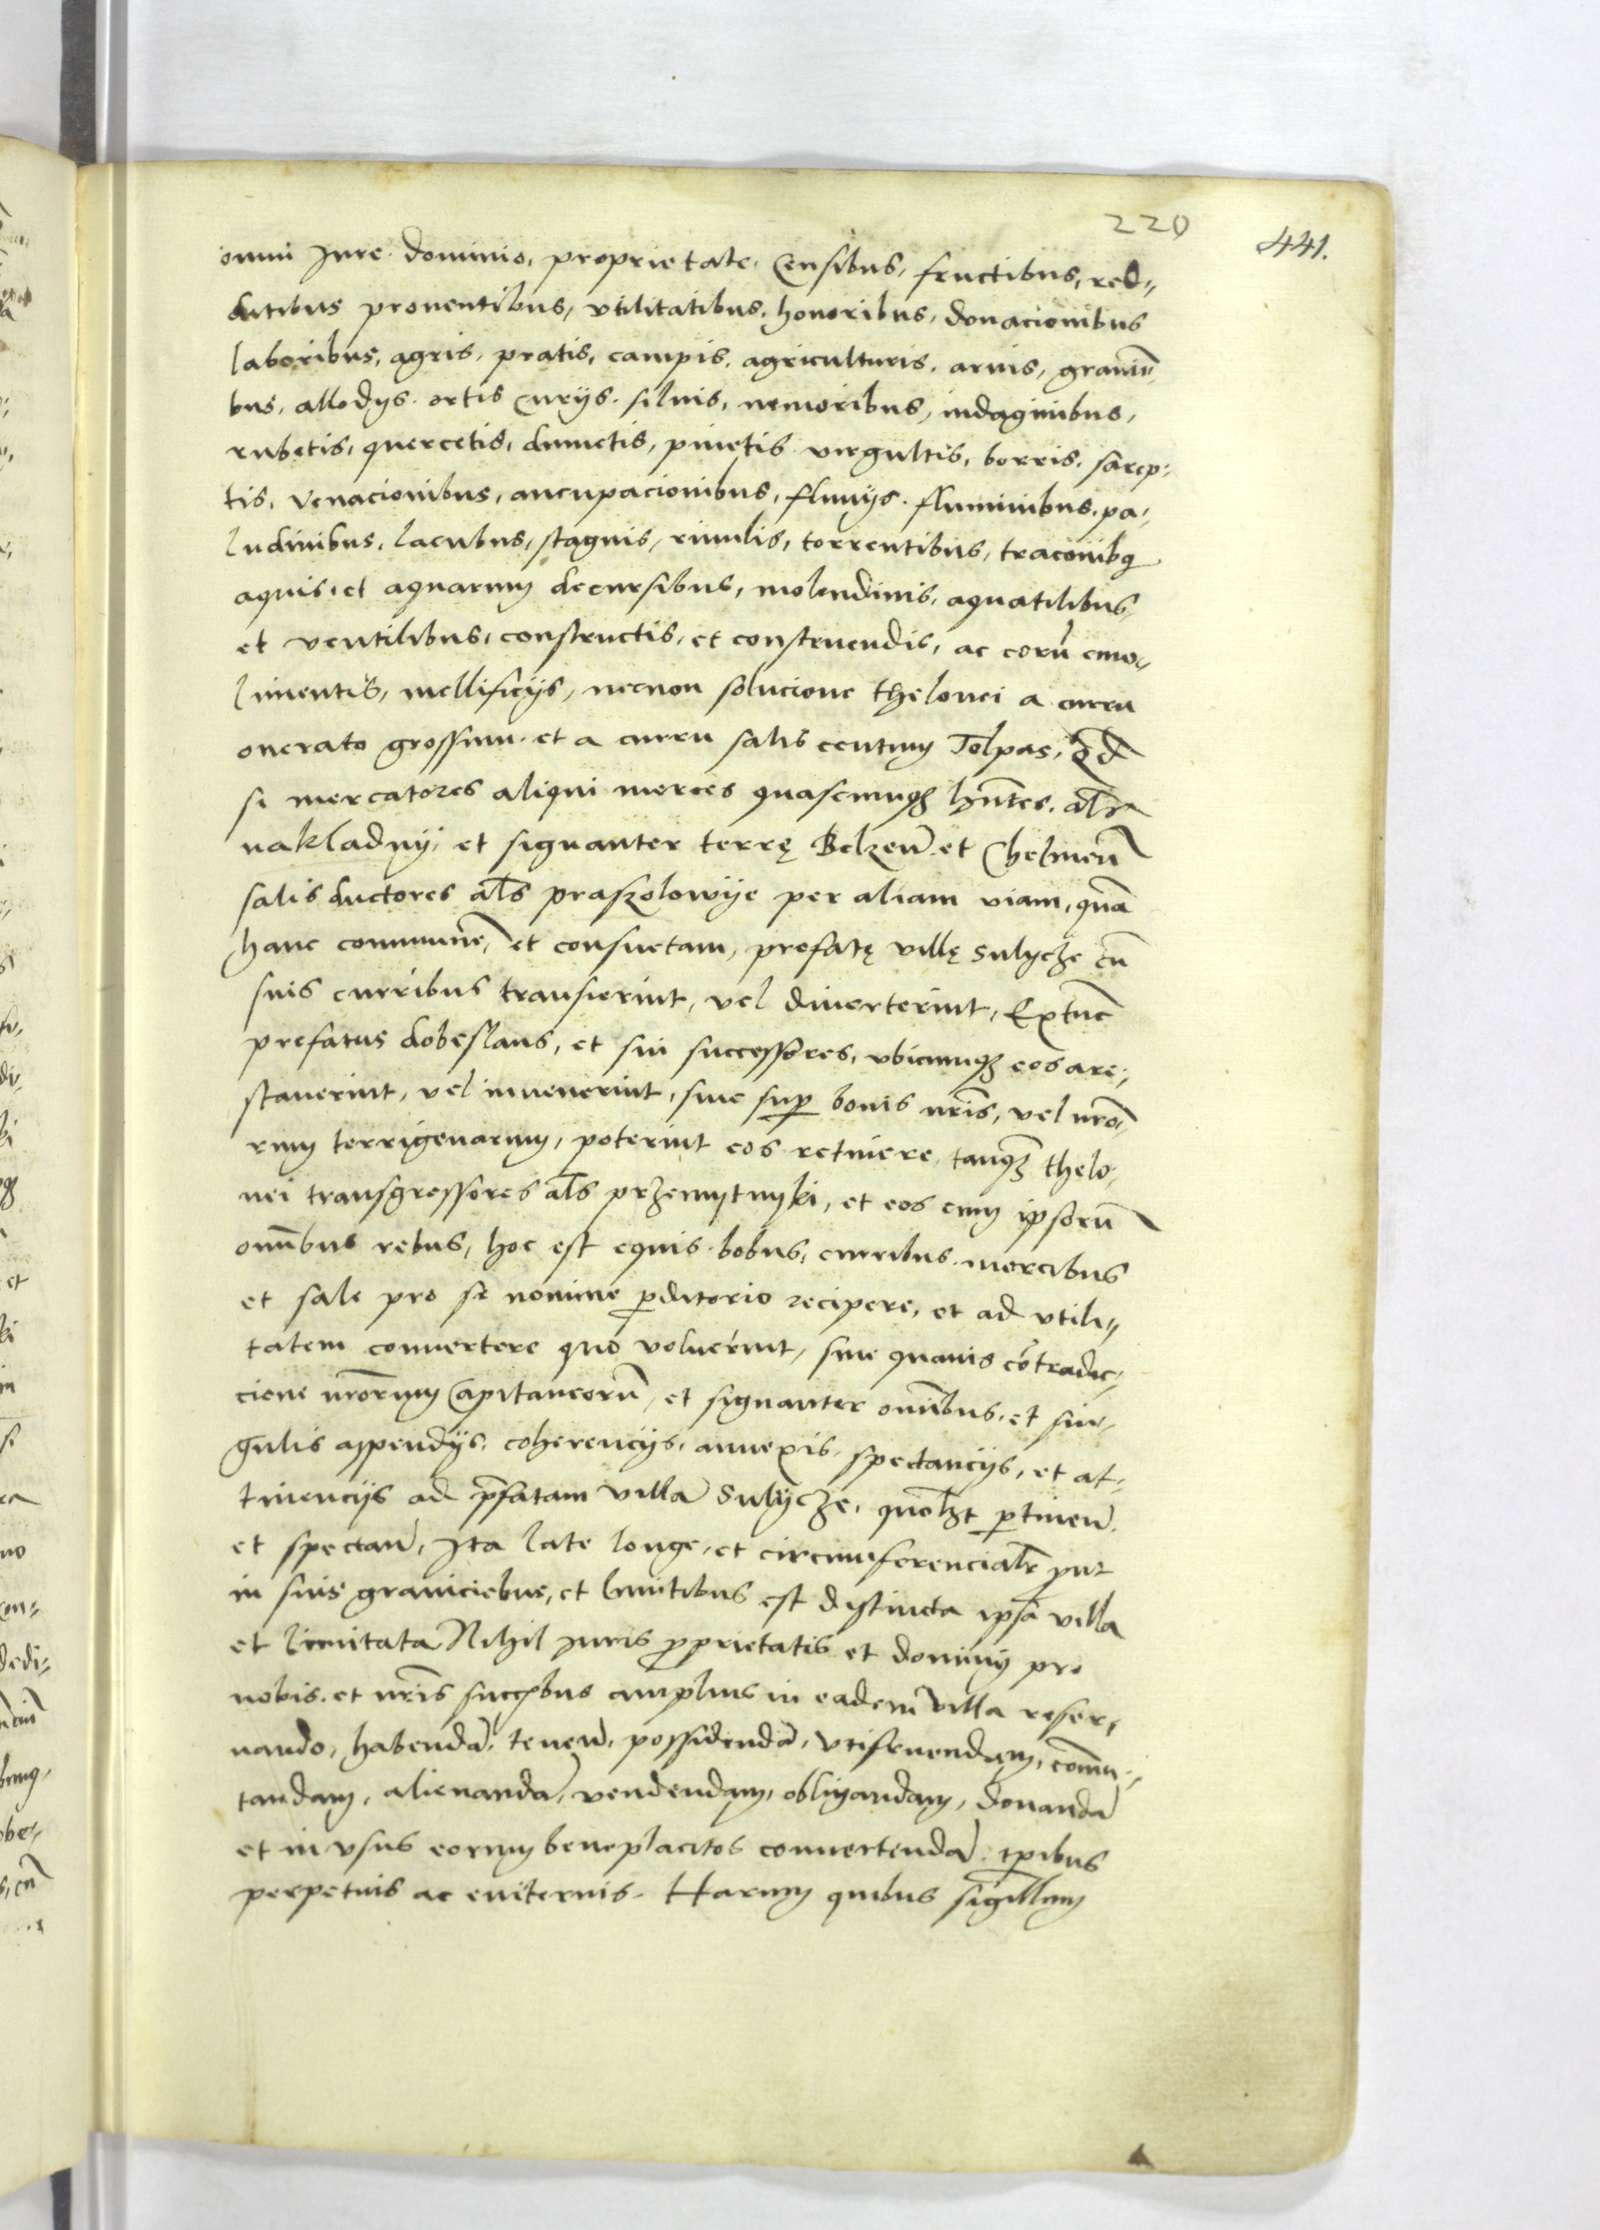 220
441.
omni Jure dominio, proprietate, Censibus, fructibus, red„
ditibus prouentibus, vtilitatibus, honoribus, donacionibus
laboribus, agris, pratis, campis, agriculturis, aruis, gramini„
bus, allodijs ortis Curijs siluis, nemoribus, indaginibus,
rubetis, quercetis, dumetis, pinetis virgultis, borris, sarep„
tis, Venacionibus, aucupacionibus, fluuijs, fluminibus, pa„
ludinibus, lacubus, stagnis, riuulis, torrentibus, traconibq
aquis, et aquarum decursibus, molendinis, aquatilibus,
et ventilibus, constructis, et construendis, ac eorū emo„
limentis, mellificijs, necnon solucione thelonei a curru
onerato grossum et a curru salis centum Tolpas, Qd
si mercatores aliqui merces quascunqȝ hn̄tes, als̄
nakladnij, et signanter terrę Belzen̄ et Chelmen̄
salis ductores als̄ praszolowije per aliam viam, quā
hanc communē, et consuetam, prefatę villę Sulycze cū
suis curribus transierint, vel diuerterint, Extunc
prefatus dobeslaus, et sui successores, vbicunqȝ eos are„
stauerint, vel inuenerint, siue sup bonis nr̄is, vel nr̄o„
rum terrigenarum, poterint eos retinere, tanqȝ thelo„
nei transgressores als̄ przemytnyki, et eos cum ipsorū
omn̄ibus rebus, hoc est equis bobus, curribus mercibus
et sale pro se nomine pditorio recipere, et ad vtili„
tatem conuertere quo voluerint, sine quauis cōtradic„
cione nr̄orum Capitaneorū, et signanter omn̄ibus, et sin„
gulis appendijs, coherencijs, annexis, spectancijs, et at„
tinencijs ad pr̄fatam villā Sulÿcze, quolȝt ptinen̄
et spectan̄, Ita late longe, et circumferencialr̄ put
in suis graniciebus, et limitibus est distincta ipsa villa
et limitata Nihil Juris pprietatis et dominij pro
nobis, et nr̄is succ̄ibus amplius in eadem villa reser„
uando, habendā, tenen̄, possidendā, vtifruendam, cōmu„
tandam, alienandā, vendendam, obligandam, donandā
et in vsus eorum beneplacitos conuertendā tp̄ibus
perpetuis ac euiternis. Harum quibus sigillum